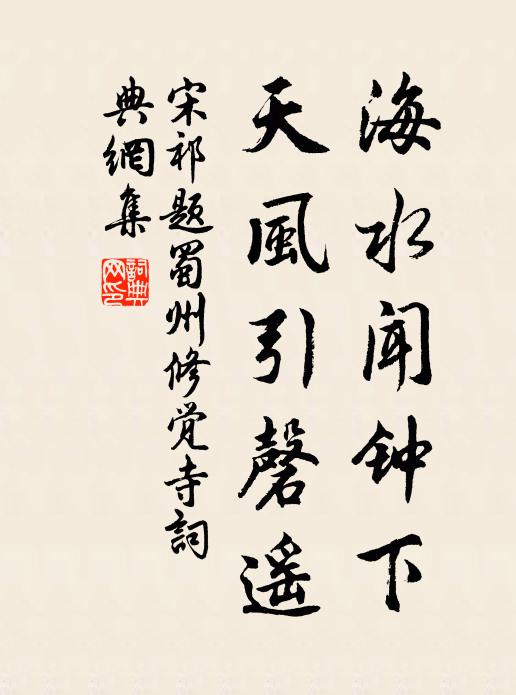 海水闻钟下
天風引磬遥
宋祁题蜀州修觉寺詞
典網集
詞典网印